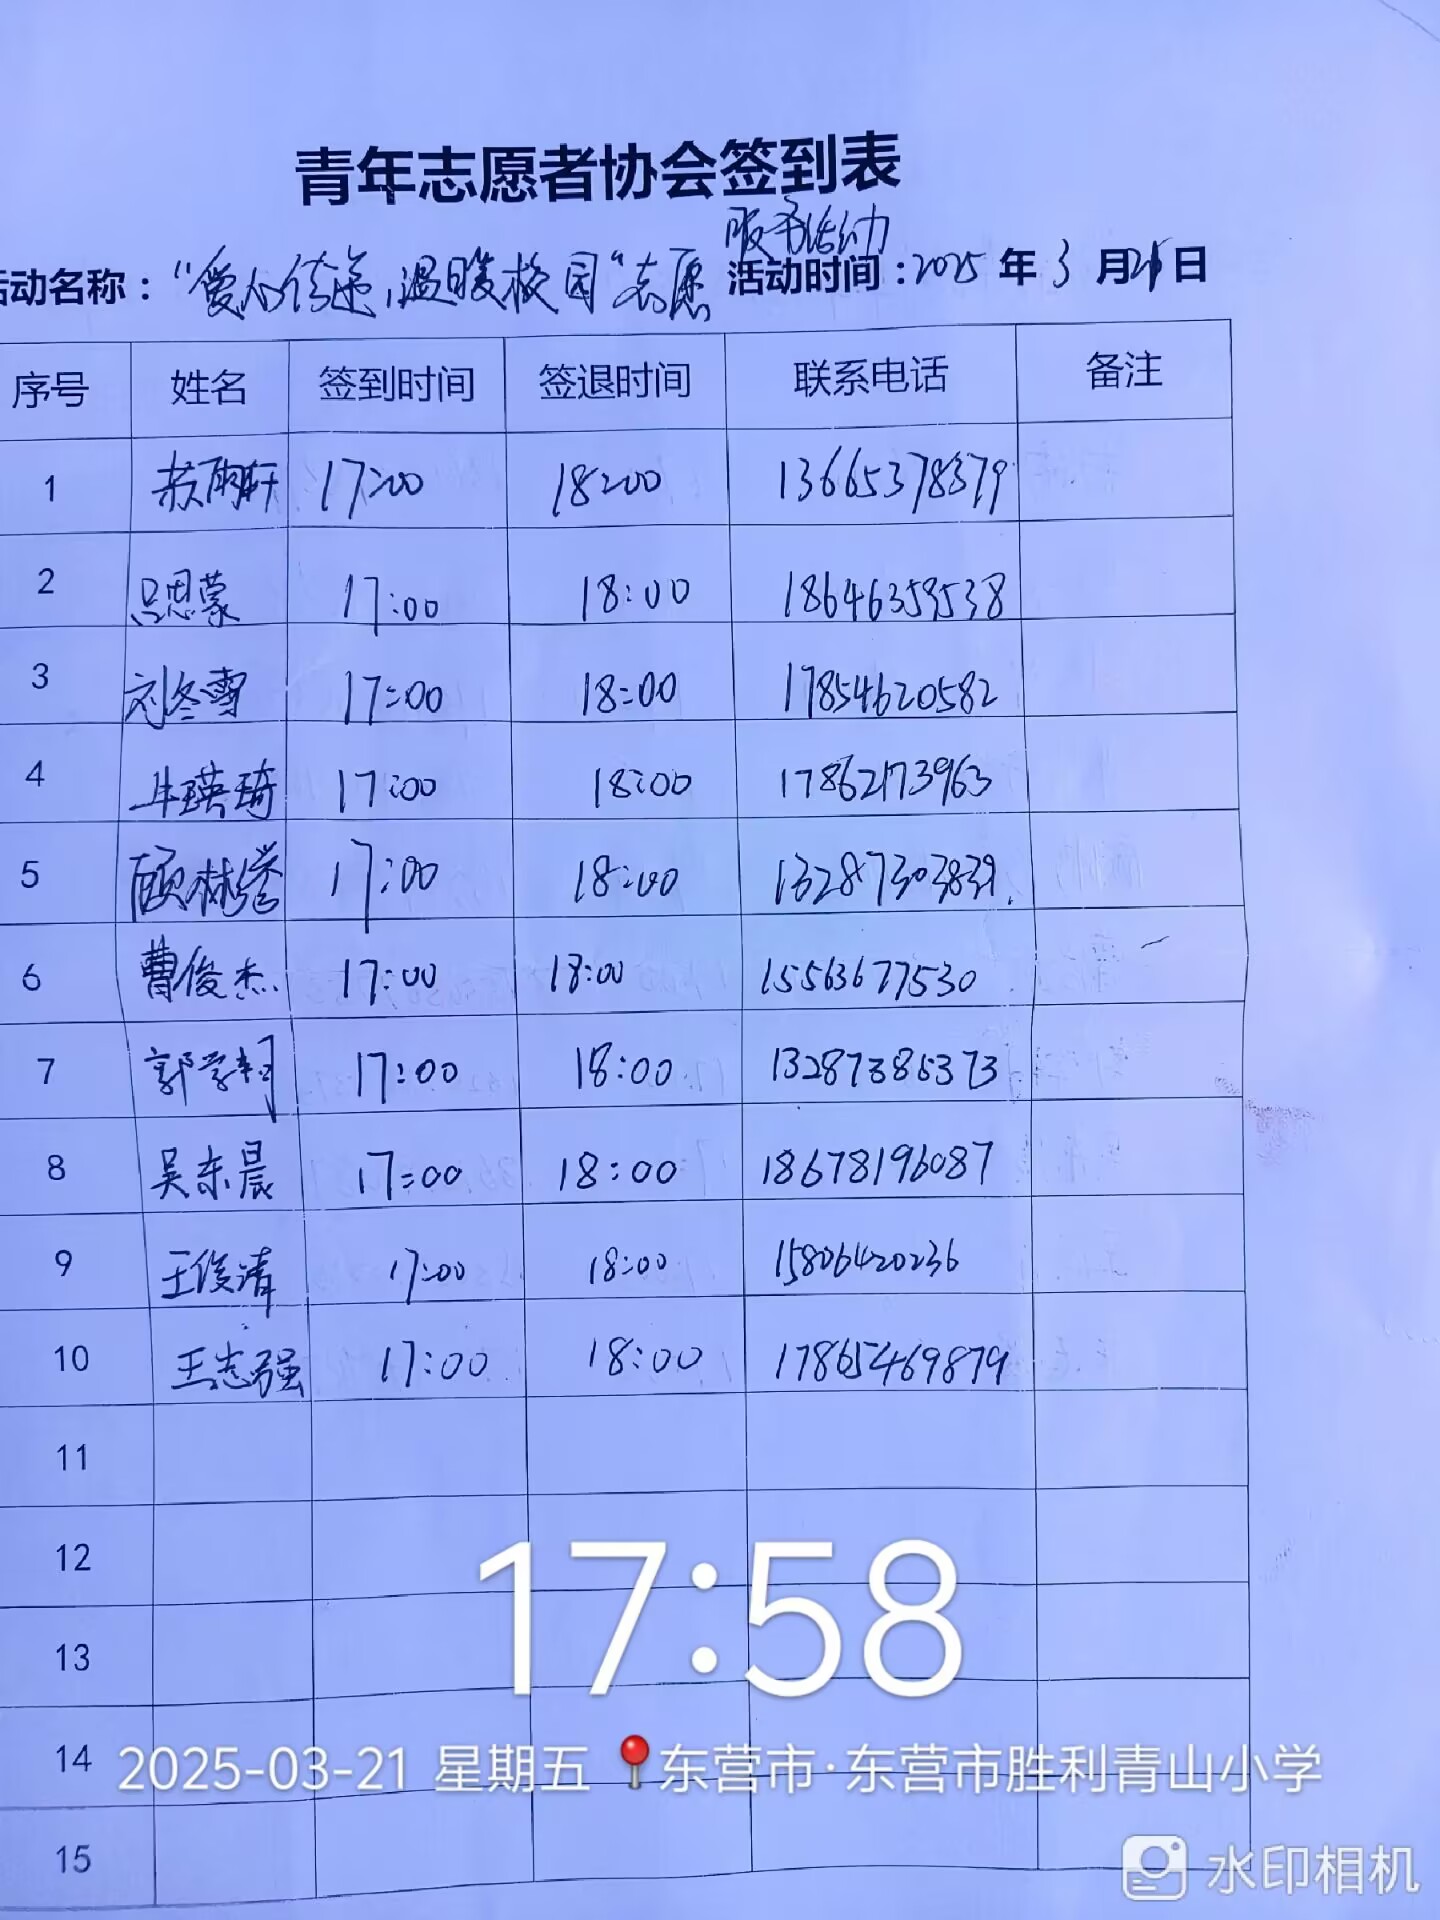 青年志愿者协会签到表
服务活动
活动名称："爱心传递,温暖校园"志愿 活动时间:2025年3月21日
序号 姓名 签到时间 签退时间 联系电话 备注
1 17:00 18:00 13665378379
2 吕思蒙 17:00 18:00 18646359538
3 刘冬雪 17:00 18:00 17854620582
4 牛瑛琦 17:00 18:00 17862173963
5 17:00 18:00 13287303839
6 曹俊杰 17:00 18:00 15563677530
7 17:00 18:00 13287385373
8 吴东晨 17:00 18:00 18678196087
9 王俊清 17:00 18:00 15806420236
10 王志强 17:00 18:00 17865469879
11
12
17:58
13
14
2025-03-21 星期五 东营市·东营市胜利青山小学
15
水印相机